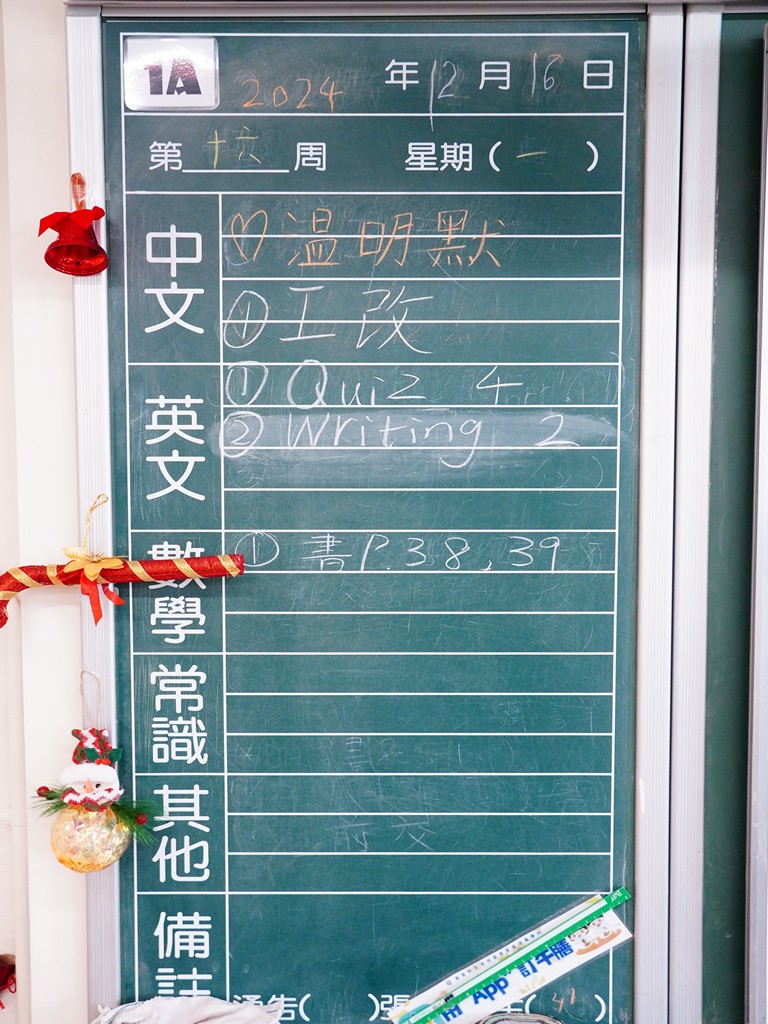 1A 2024 年 12 月 16 日
第 十六 周 星期 ( 一 )
中文
♡ 温明默
① 工改
英文
① Quiz 4
② Writing 2
數學
① 書P.38,39
常識
其他
前交
備註
App 訂午膳
通告( )張 ( )